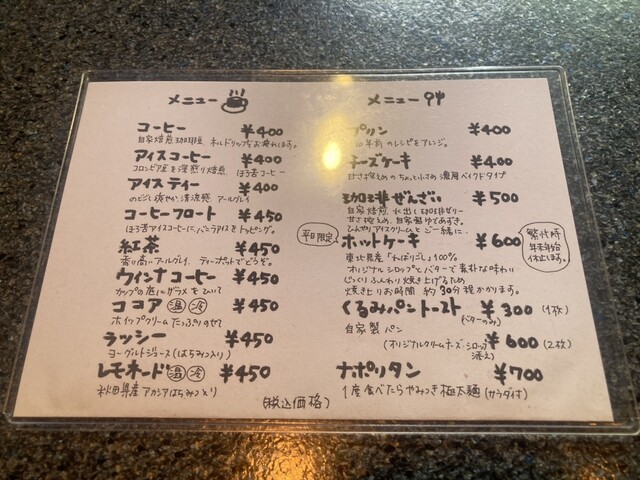 メニュー
コーヒー ¥400
自家焙煎珈琲豆 ネルドリップでお淹れします。
アイスコーヒー ¥400
コロンビア豆を深煎り焙煎 ほろ苦コーヒー
アイスティー ¥400
のどごし爽やか 清涼感 アールグレイ
コーヒーフロート ¥450
ほろ苦アイスコーヒーに、バニラアイスをトッピング。
紅茶 ¥450
香り高いアールグレイ ティーポットでどうぞ。
ウィンナコーヒー ¥450
カップの底にザラメをひいて
ココア 温 冷 ¥450
ホイップクリームたっぷりのせて
ラッシー ¥450
ヨーグルトジュース(はちみつ入り)
レモネード 温 冷 ¥450
秋田県産アカシアはちみつ入り
(税込価格)
メニュー
プリン ¥400
年前のレシピをアレンジ。
チーズケーキ ¥400
甘さひかえめの ちょっと小さめ 濃厚ベイクドタイプ
珈琲ぜんざい ¥500
自家焙煎 水出し珈琲ゼリー
甘さ控えめ 自家製ゆであずき。
ひんやりアイスクリームとご一緒に…
平日限定
ホットケーキ ¥600
繁忙時
年末年始
休止します。
東北県産「ねばりごし」100%
オリジナルシロップとバターで素朴な味わい
じっくりふんわり焼き上げるため
焼き上りお時間 約30分程かかります。
くるみパントースト ¥300 (1枚)
(バターのみ)
自家製パン
¥600 (2枚)
(オリジナルクリームチーズ・シロップ
添え)
ナポリタン ¥700
1度食べたらやみつき極太麺 (サラダ付)